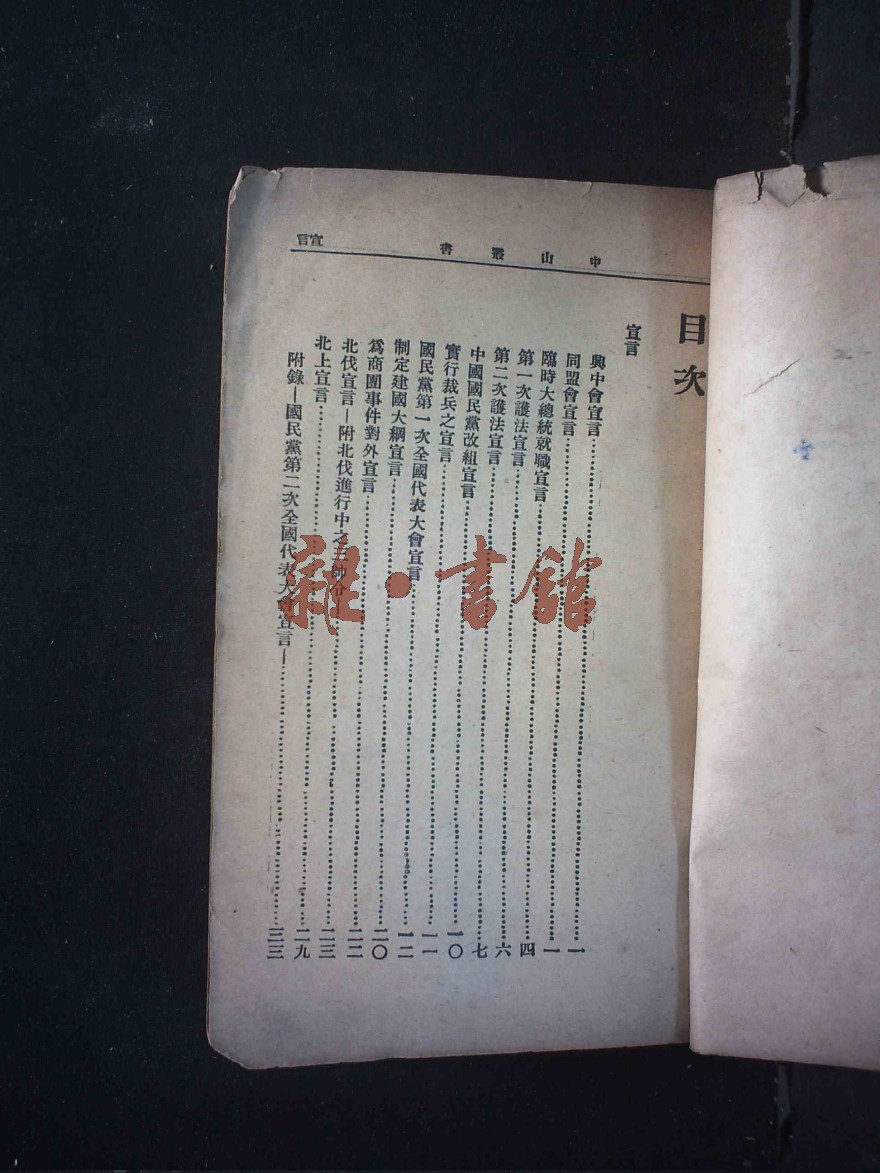 中山叢書
宣言
目次
宣言
興中會宣言……一
同盟會宣言……一
臨時大總統就職宣言……四
第一次護法宣言……六
第二次護法宣言……七
中國國民黨改組宣言……一〇
實行裁兵之宣言……一一
國民黨第一次全國代表大會宣言……一二
制定建國大綱宣言……二〇
爲商團事件對外宣言……二二
北伐宣言—附北伐進行中之三帥令—……二三
北上宣言……二九
附錄—國民黨第二次全國代表大會宣言—……三三
雜·書館